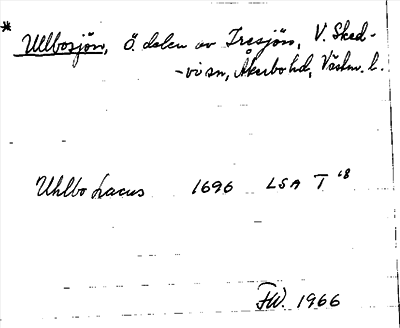 * Ullbosjön, Ö. delen av Tresjön, V. Sked-
-vi sn, Åkerbo hd, Västm. l.
Uhlbo Lacus 1696 LSA T 18
FW. 1966